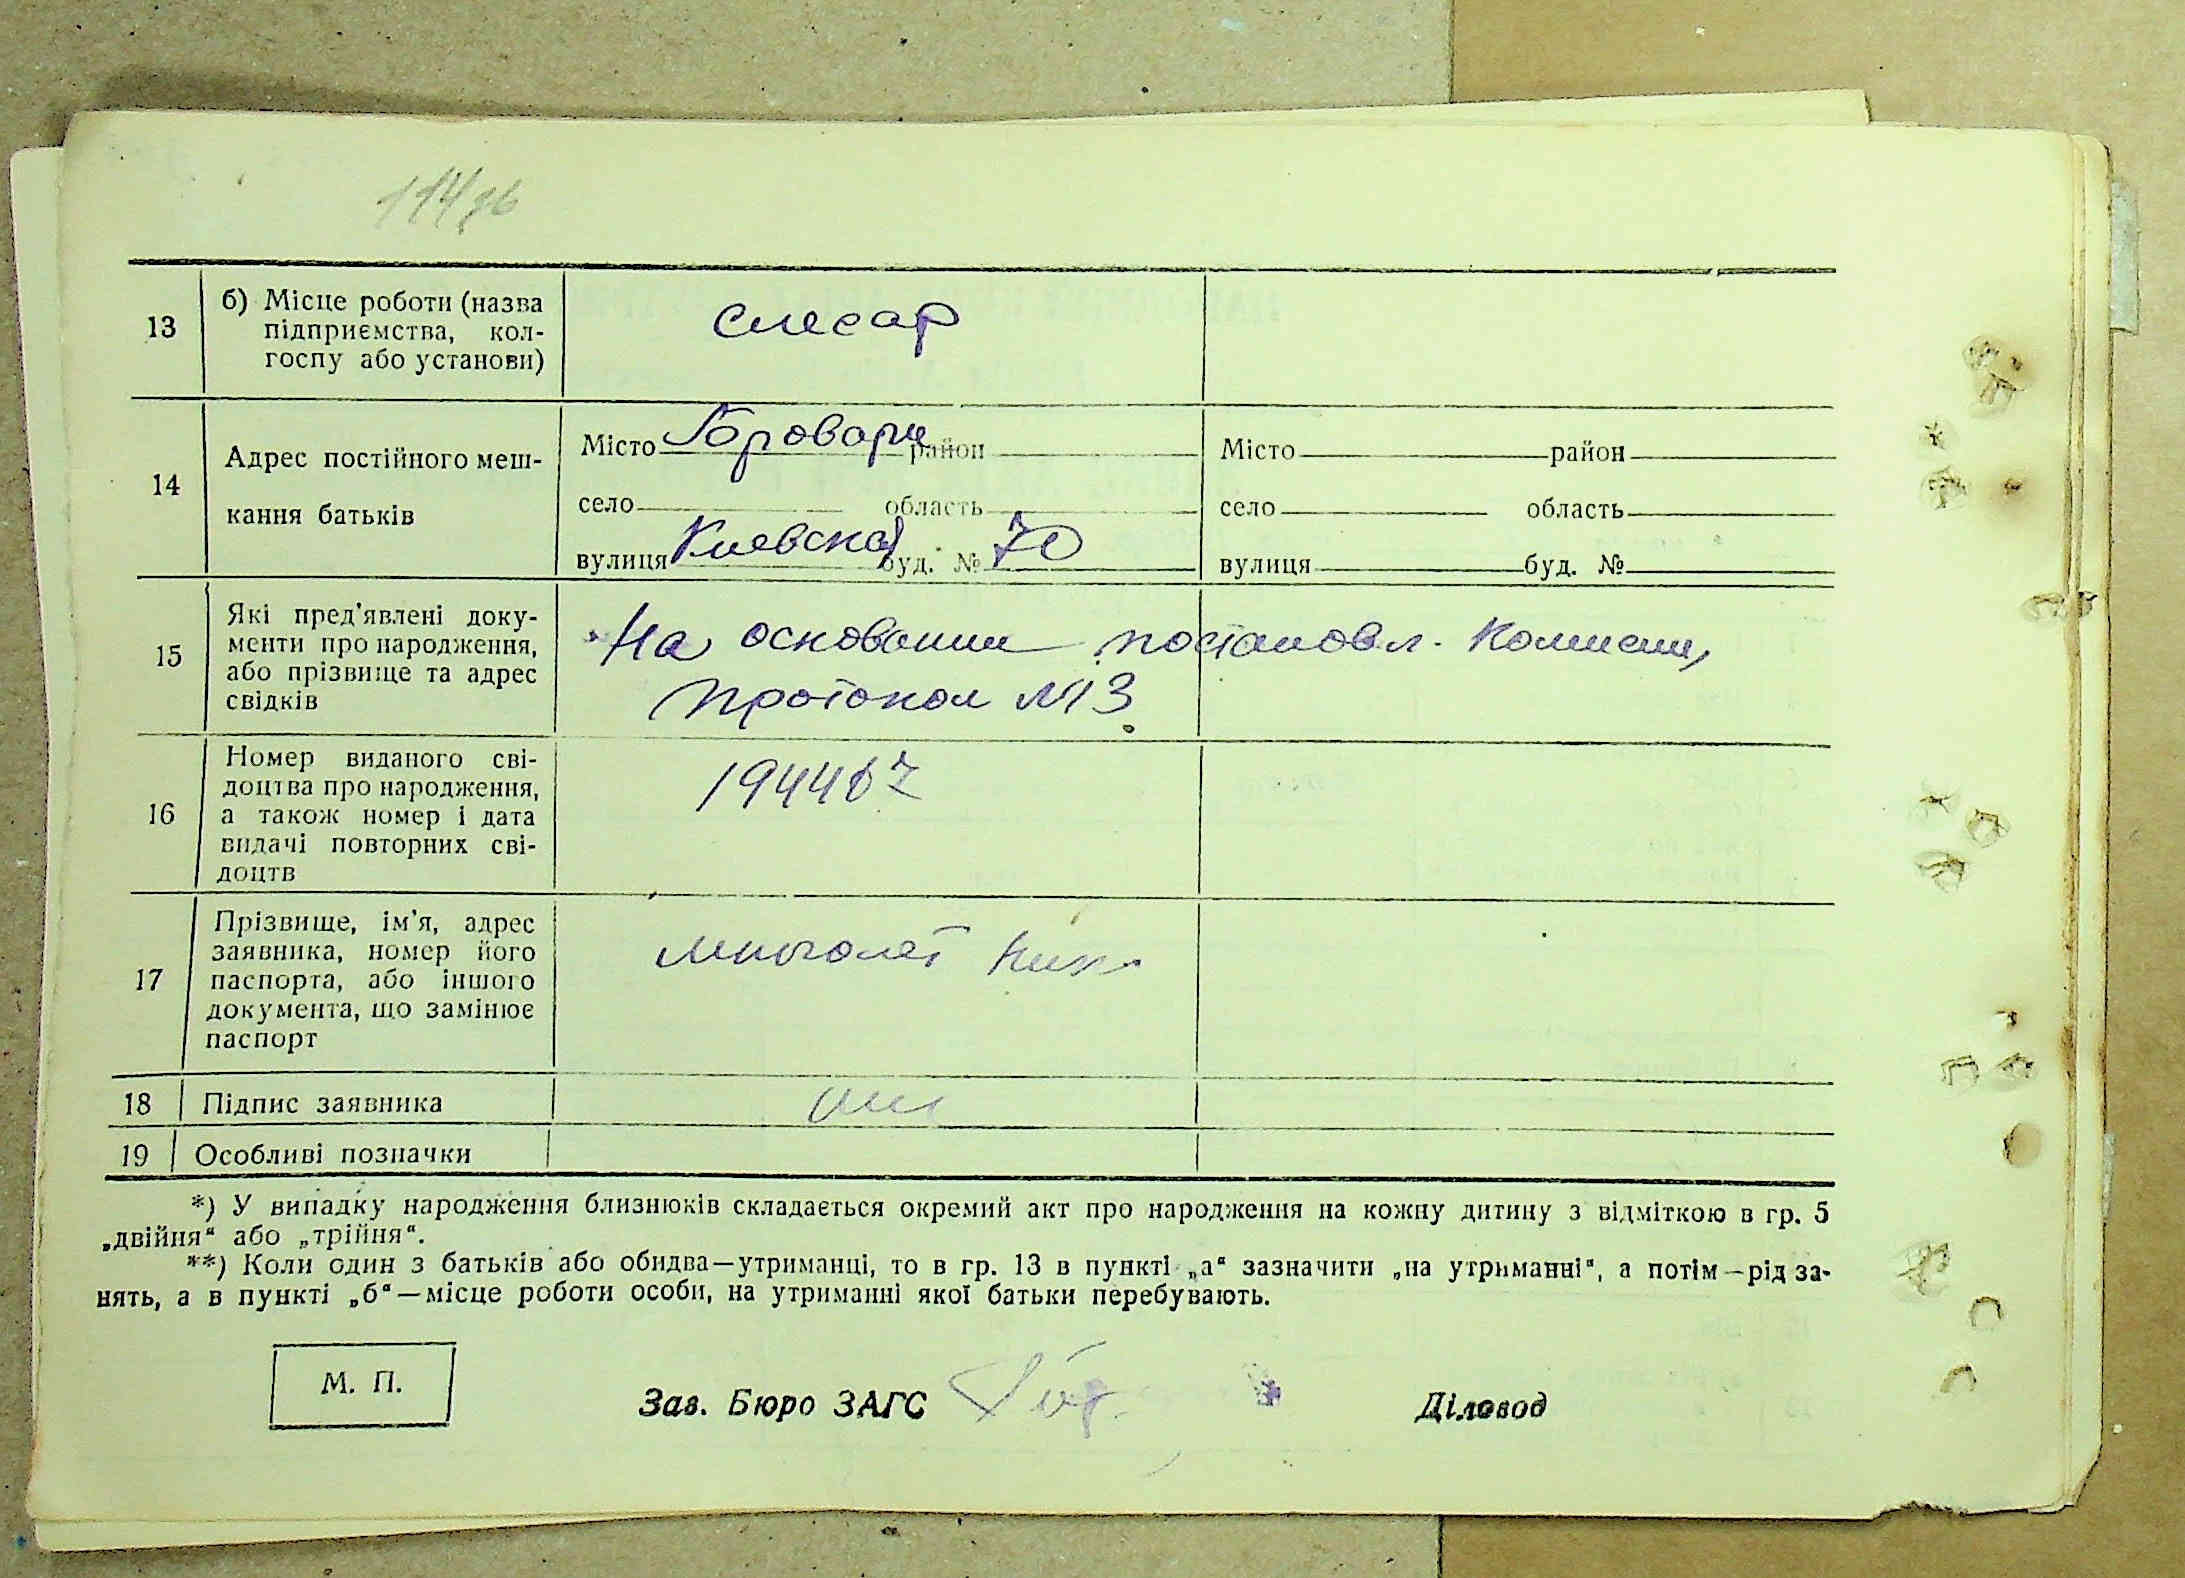 114зв
13 б) Місце роботи (назва
підприємства, кол-
госпу або установи)
слесар
14 Адрес постійного меш-
кання батьків
Місто Бровари район Місто район
село область село область
вулиця Киевская буд. № 70 вулиця буд. №
15 Які пред'явлені доку-
менти про народження,
або прізвище та адрес
свідків
На основании постановл. Комисии,
протокол №13
16 Номер виданого сві-
доцтва про народження,
а також номер і дата
видачі повторних сві-
доцтв
17 Прізвище, ім'я, адрес
заявника, номер його
паспорта, або іншого
документа, що замінює
паспорт
Многолет
18 Підпис заявника
19 Особливі позначки
*) У випадку народження близнюків складається окремий акт про народження на кожну дитину з відміткою в гр. 5
„двійня“ або „трійня“.
**) Коли один з батьків або обидва—утриманці, то в гр. 13 в пункті „а“ зазначити „на утриманні“, а потім—рід за-
нять, а в пункті „б“—місце роботи особи, на утриманні якої батьки перебувають.
М. П.
Зав. Бюро ЗАГС Діловод